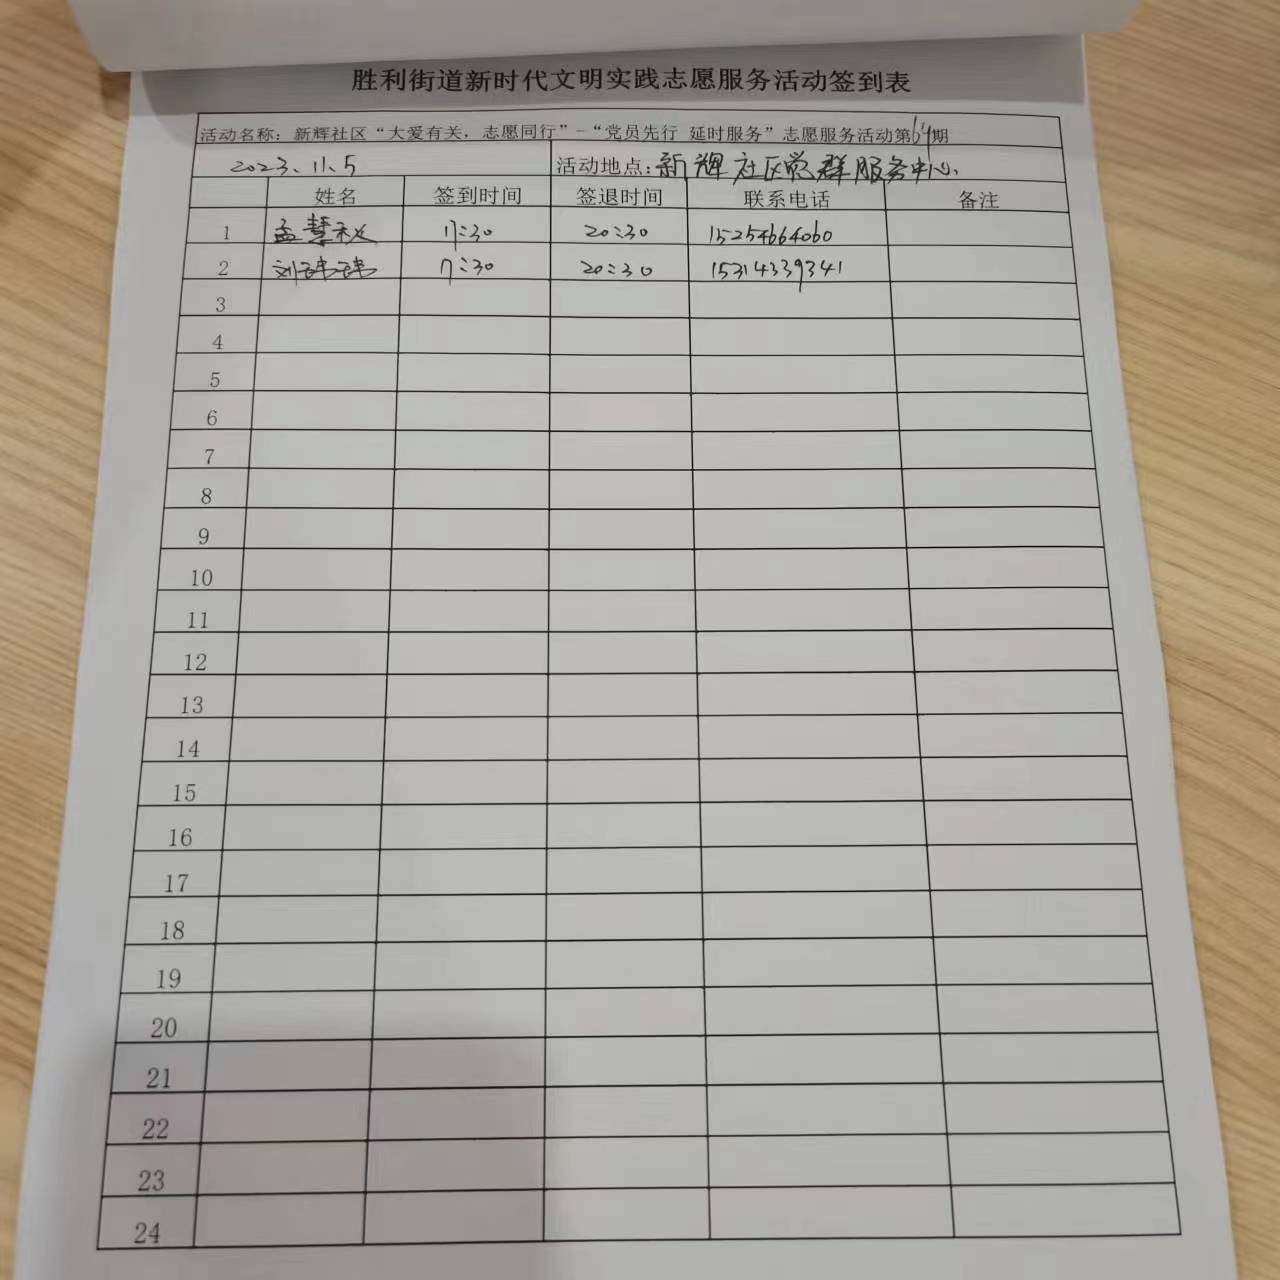 胜利街道新时代文明实践志愿服务活动签到表
活动名称：新辉社区“大爱有关，志愿同行”-“党员先行 延时服务”志愿服务活动第64期
2023.11.5 活动地点：新辉社区党群服务中心
姓名 签到时间 签退时间 联系电话 备注
1 孟慧秋 17:30 20:30 15254664060
2 刘 17:30 20:30 15314339341
3
4
5
6
7
8
9
10
11
12
13
14
15
16
17
18
19
20
21
22
23
24